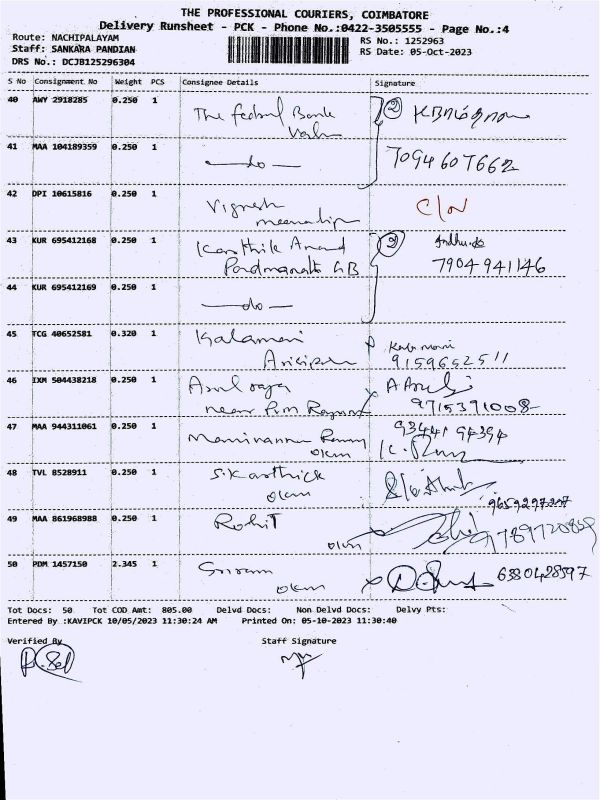 THE PROFESSIONAL COURIERS, COIMBATORE
Delivery Runsheet - PCK - Phone No.:0422-3505555 - Page No.:4
Route: NACHIPALAYAM
Staff: SANKARA PANDIAN
DRS No.: DCJB125296304
RS No.: 1252963
RS Date: 05-Oct-2023
S No Consignment No Weight PCS Consignee Details Signature
40 AWY 2918285 0.250 1 The Federal Bank 2
41 MAA 104189359 0.250 1 do 7094607662
42 DPI 10615816 0.250 1 Vignesh
43 KUR 695412168 0.250 1 Karthik Anand 2
Padmanath GB 7904941146
44 KUR 695412169 0.250 1 do
45 TCG 40652581 0.320 1 Kalamani
9159652511
46 IXM 504438218 0.250 1 Arulraja
near 9715391008
47 MAA 944311061 0.250 1 93441 94394
okm
48 TVL 8528911 0.250 1 S.Karthick
okm
49 MAA 861968988 0.250 1 Rohit
okm
50 PDM 1457150 2.345 1 Sriram 6380428597
okm
Tot Docs: 50 Tot COD Amt: 805.00 Delvd Docs: Non Delvd Docs: Delvy Pts:
Entered By :KAVIPCK 10/05/2023 11:30:24 AM Printed On: 05-10-2023 11:30:40
Verified By Staff Signature